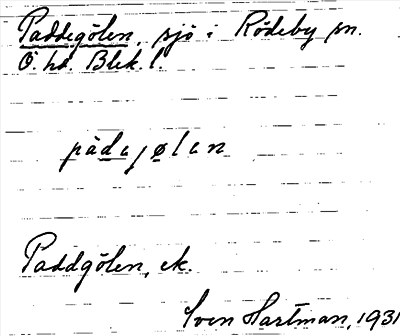 Paddegölen, sjö i Rödeby sn.
Ö. hd. Blek. l.
pàdajølen
Paddgölen, ek.
Sven Hartman, 1931